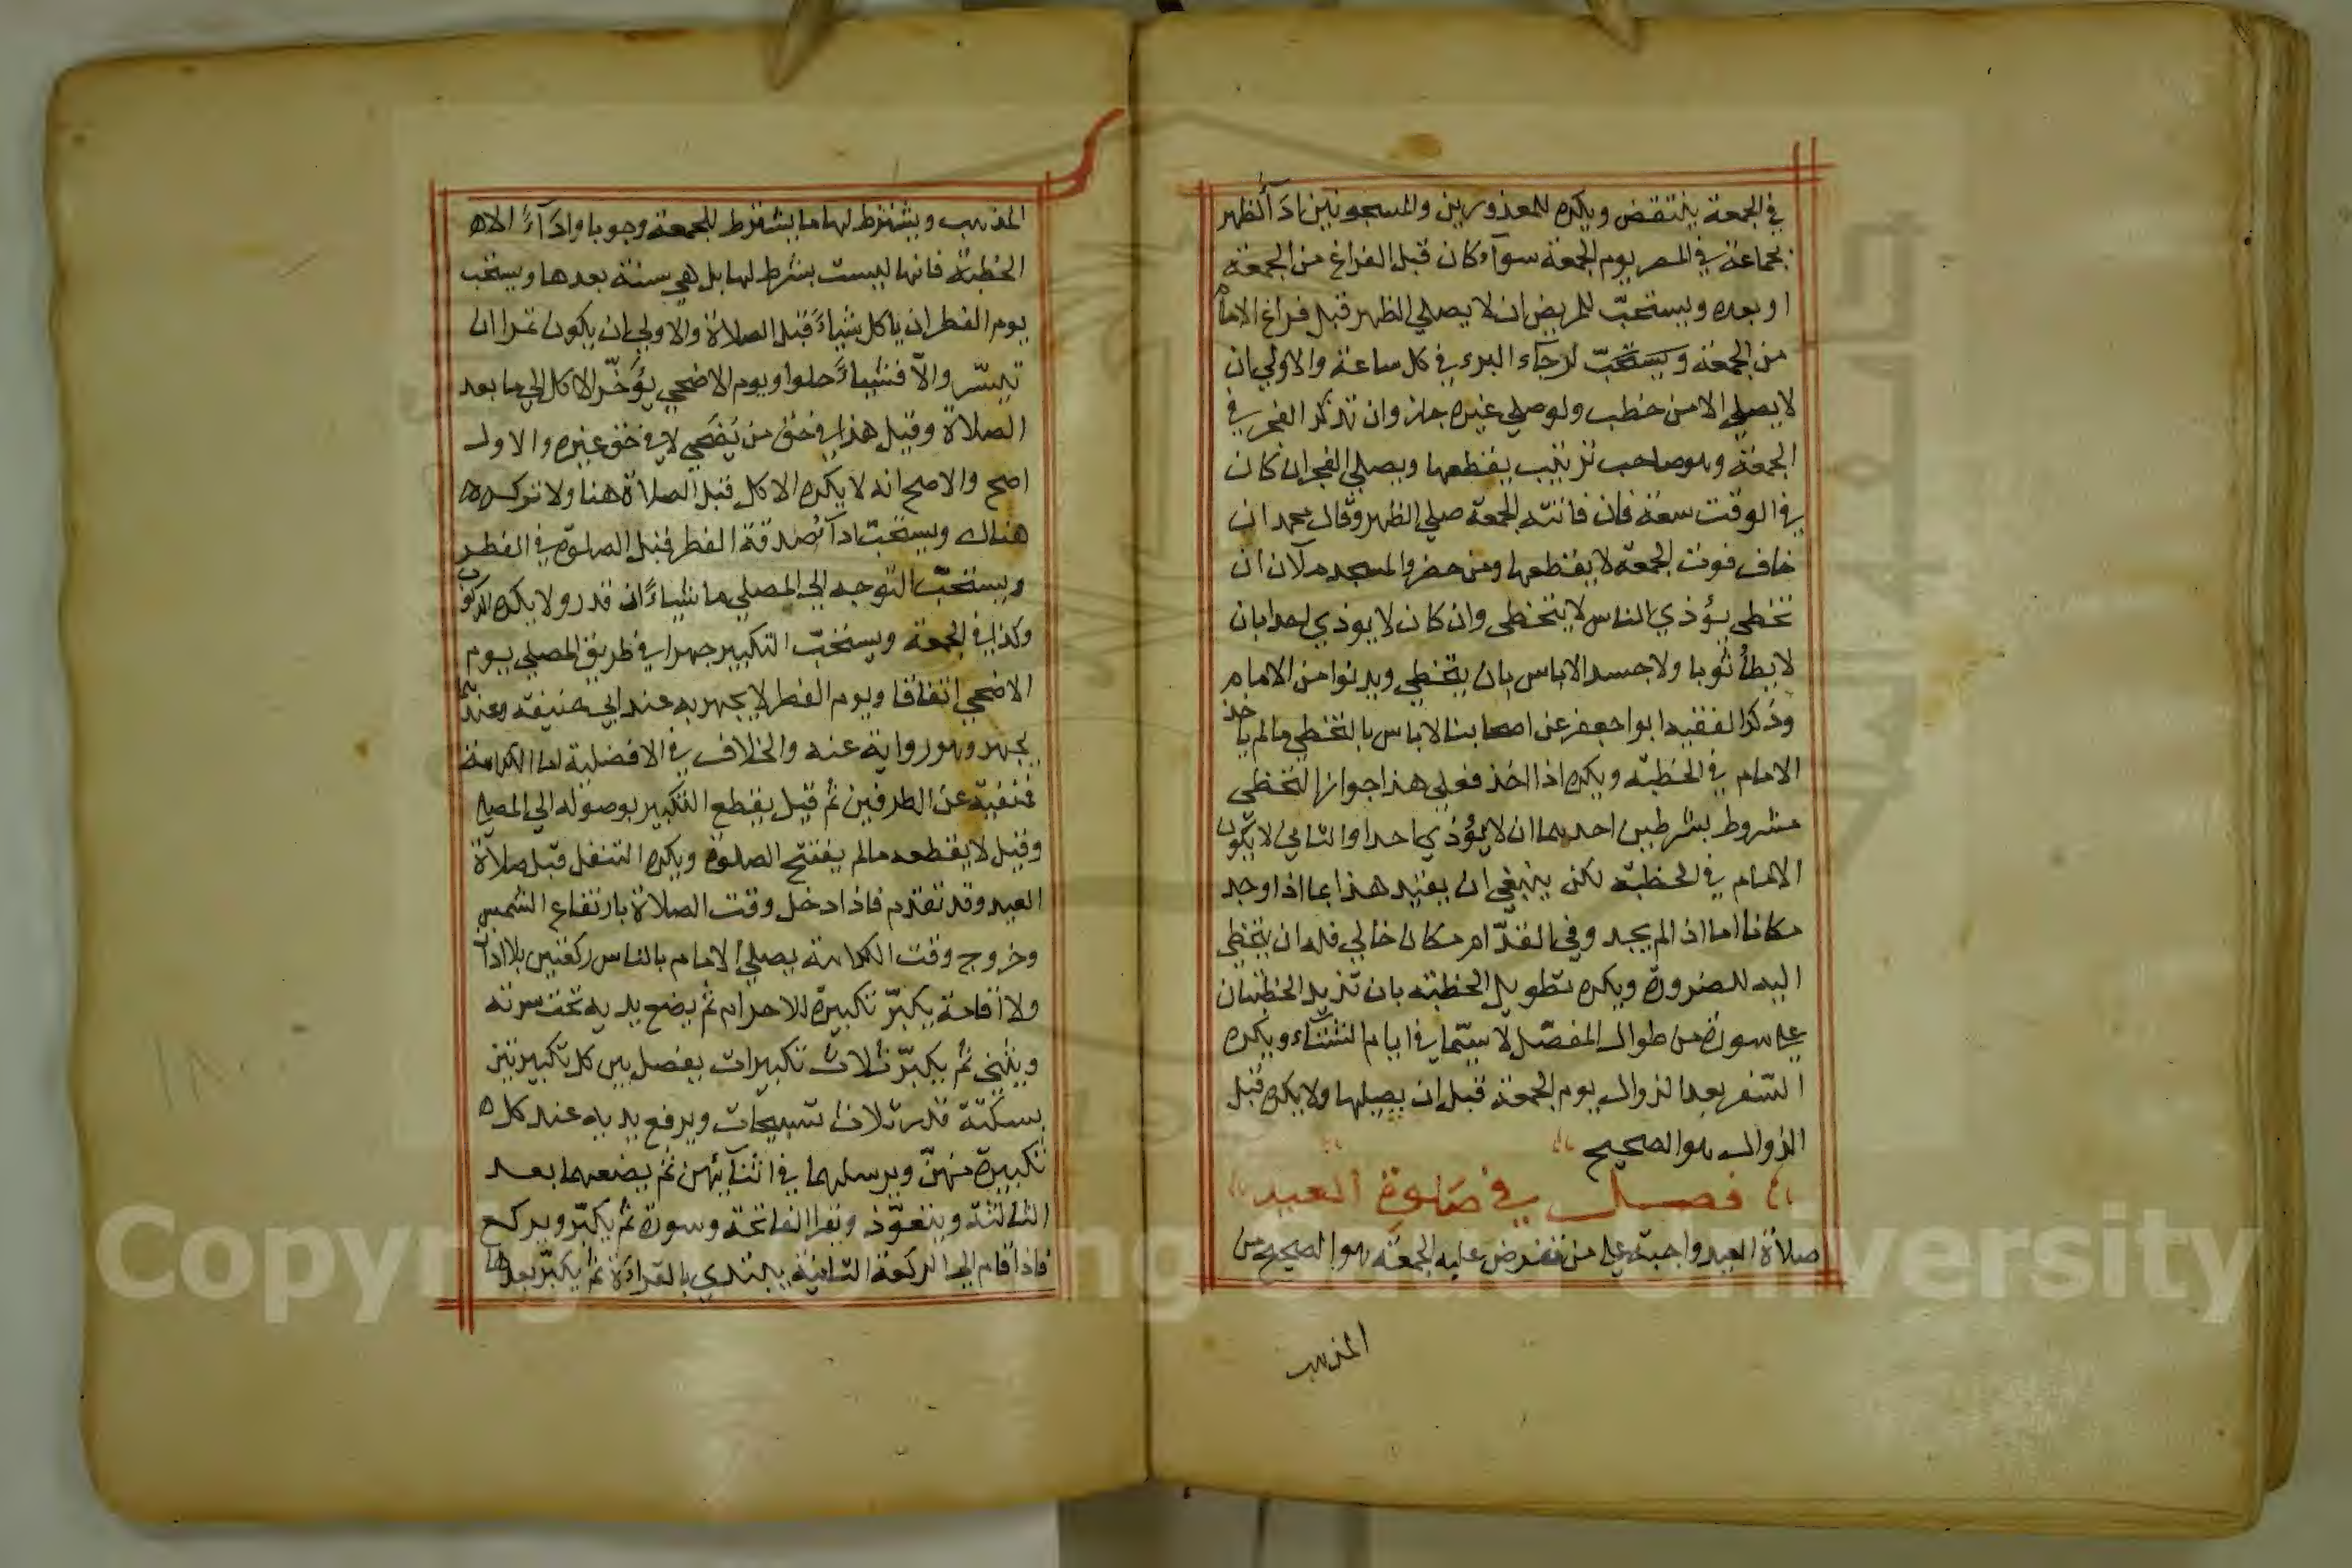 في الجمعة ينتقض ويكره للمعذورين والمسجونين ادآ الظهر
بجماعة في المصر يوم الجمعة سوآء كان قبل الفراغ من الجمعة
او بعده ويستحبّ للمريض ان لا يصلي الظهر قبل فراغ الامام
من الجمعة ويستحبّ لرجآء البرء في كل ساعة والاولي ان
لا يصلي الا من خطب ولو صلي غيره جاز وان تذكّر الفجر في
الجمعة وهو صاحب ترتيب يقطعها ويصلي الفجر ان كان
في الوقت سعة فان فاتته الجمعة صلي الظهر وقال محمد ان
خاف فوت الجمعة لا يقطعها ومن حضر والمسجد ملآن ان
تخطى يؤذي الناس لا يتخطى وان كان لا يوذي احدا بان
لا يطأ ثوبا ولا جسدا لا باس بان يتخطي ويدنوا من الامام
وذكر الفقيه ابوا جعفر عن اصحابنا لا باس بالتخطي مالم ياخذ
الامام في الخطبة ويكره اذا اخذ فعلي هذا جواز التخطى
مشروط بشرطين احدهما ان لا يؤذي احدا والثاني لا يكون
الامام في الخطبة لكن ينبغي ان يقيد هذا بما اذا وجد
مكانا اما اذا لم يجد وفي القدّام مكان خالي فله ان يتخطى
اليه للضرورة ويكره تطويل الخطبة بان تزيد الخطبتان
علي سورة من طوال المفصّل لا سيّما في ايام الشتآء ويكره
السّفر بعد الزوال يوم الجمعة قبل ان يصليها ولا يكره قبل
الزوال هو الصحيح
فصل في صلوة العيد
صلاة العيد واجبة علي من تفرض عليه الجمعة هو الصحيح من
المذهب
المذهب ويشترط لها ما يشترط للجمعة وجوبا وادآءً الا
الخطبة فانها ليست بشرط لها بل هي سنة بعدها ويستحب
يوم الفطر ان ياكل شياءً قبل الصلاة والاولي ان يكون تمرا ان
تيسّر والاّ فشياءً حلوا ويوم الاضحي يؤخّر الاكل الي ما بعد
الصلاة وقيل هذا في حق من يضحي لا في حق غيره والاول
اصح والاصح انه لا يكره الاكل قبل الصلاة هنا ولا تركه
هناك ويستحبّ ادآء صدقة الفطر قبل الصلوة في الفطر
ويستحبّ التوجه الي المصلي ماشياءً ان قدر ولا يكره الركوب
وكذا في الجمعة ويستحبّ التكبير جهرا في طريق المصلي يوم
الاضحي اتفاقا ويوم الفطر لا يجهر به عند ابي حنيفة وعندهما
يجهر وهو رواية عنه والخلاف في الافضلية اما الكراهة
فمنفيّة عن الطرفين ثم قيل يقطع التكبير بوصوله الي المصلي
وقيل لا يقطعه مالم يفتتح الصلوة ويكره التنفل قبل صلاة
العيد وقد تقدم فاذا دخل وقت الصلاة بارتفاع الشمس
وخروج وقت الكراهة يصلي الامام بالناس ركعتين بلا اذان
ولا اقامة يكبّر تكبيرة للاحرام ثم يضع يديه تحت سرته
ويثني ثم يكبّر ثلاث تكبيرات يفصل بين كل تكبيرتين
بسكتة قدر ثلاث تسبيحات ويرفع يديه عند كل
تكبيرة منهنّ ويرسلهما في اثنآئهن ثم يضعهما بعد
الثالثة ويتعوّذ ويقرا الفاتحة وسورة ثم يكبّر ويركع
فاذا قام الي الركعة الثانية يبتدي بالقراءة ثم يكبّر بعدها